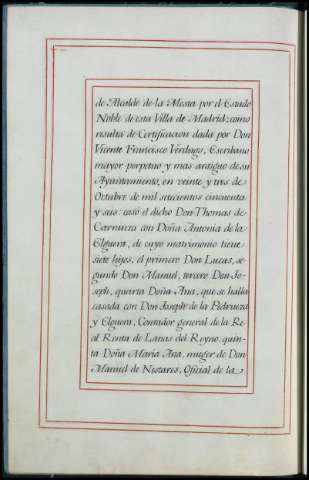 de Alcalde de la Mesta por el Estado
Noble de esta Villa de Madrid; como
resulta de Certificacion dada por Don
Vicente Francisco Verdugo, Escribano
mayor perpetuo y mas antiguo de su
Ayuntamiento, en veinte y tres de
Octubre de mil setecientos cincuenta
y seis: casó el dicho Don Thomas de
Carnueza con Doña Antonia de la
Elguera, de cuyo matrimonio tiene
siete hijos, el primero Don Lucas, se-
gundo Don Manuel, tercero Don Jo-
seph, quarta Doña Ana, que se halla
casada con Don Joseph de la Pedrueza
y Elguera, Contador general de la Re-
al Renta de Lanas del Reyno, quin-
ta Doña Maria Ana, muger de Don
Manuel de Nestares, Oficial de la